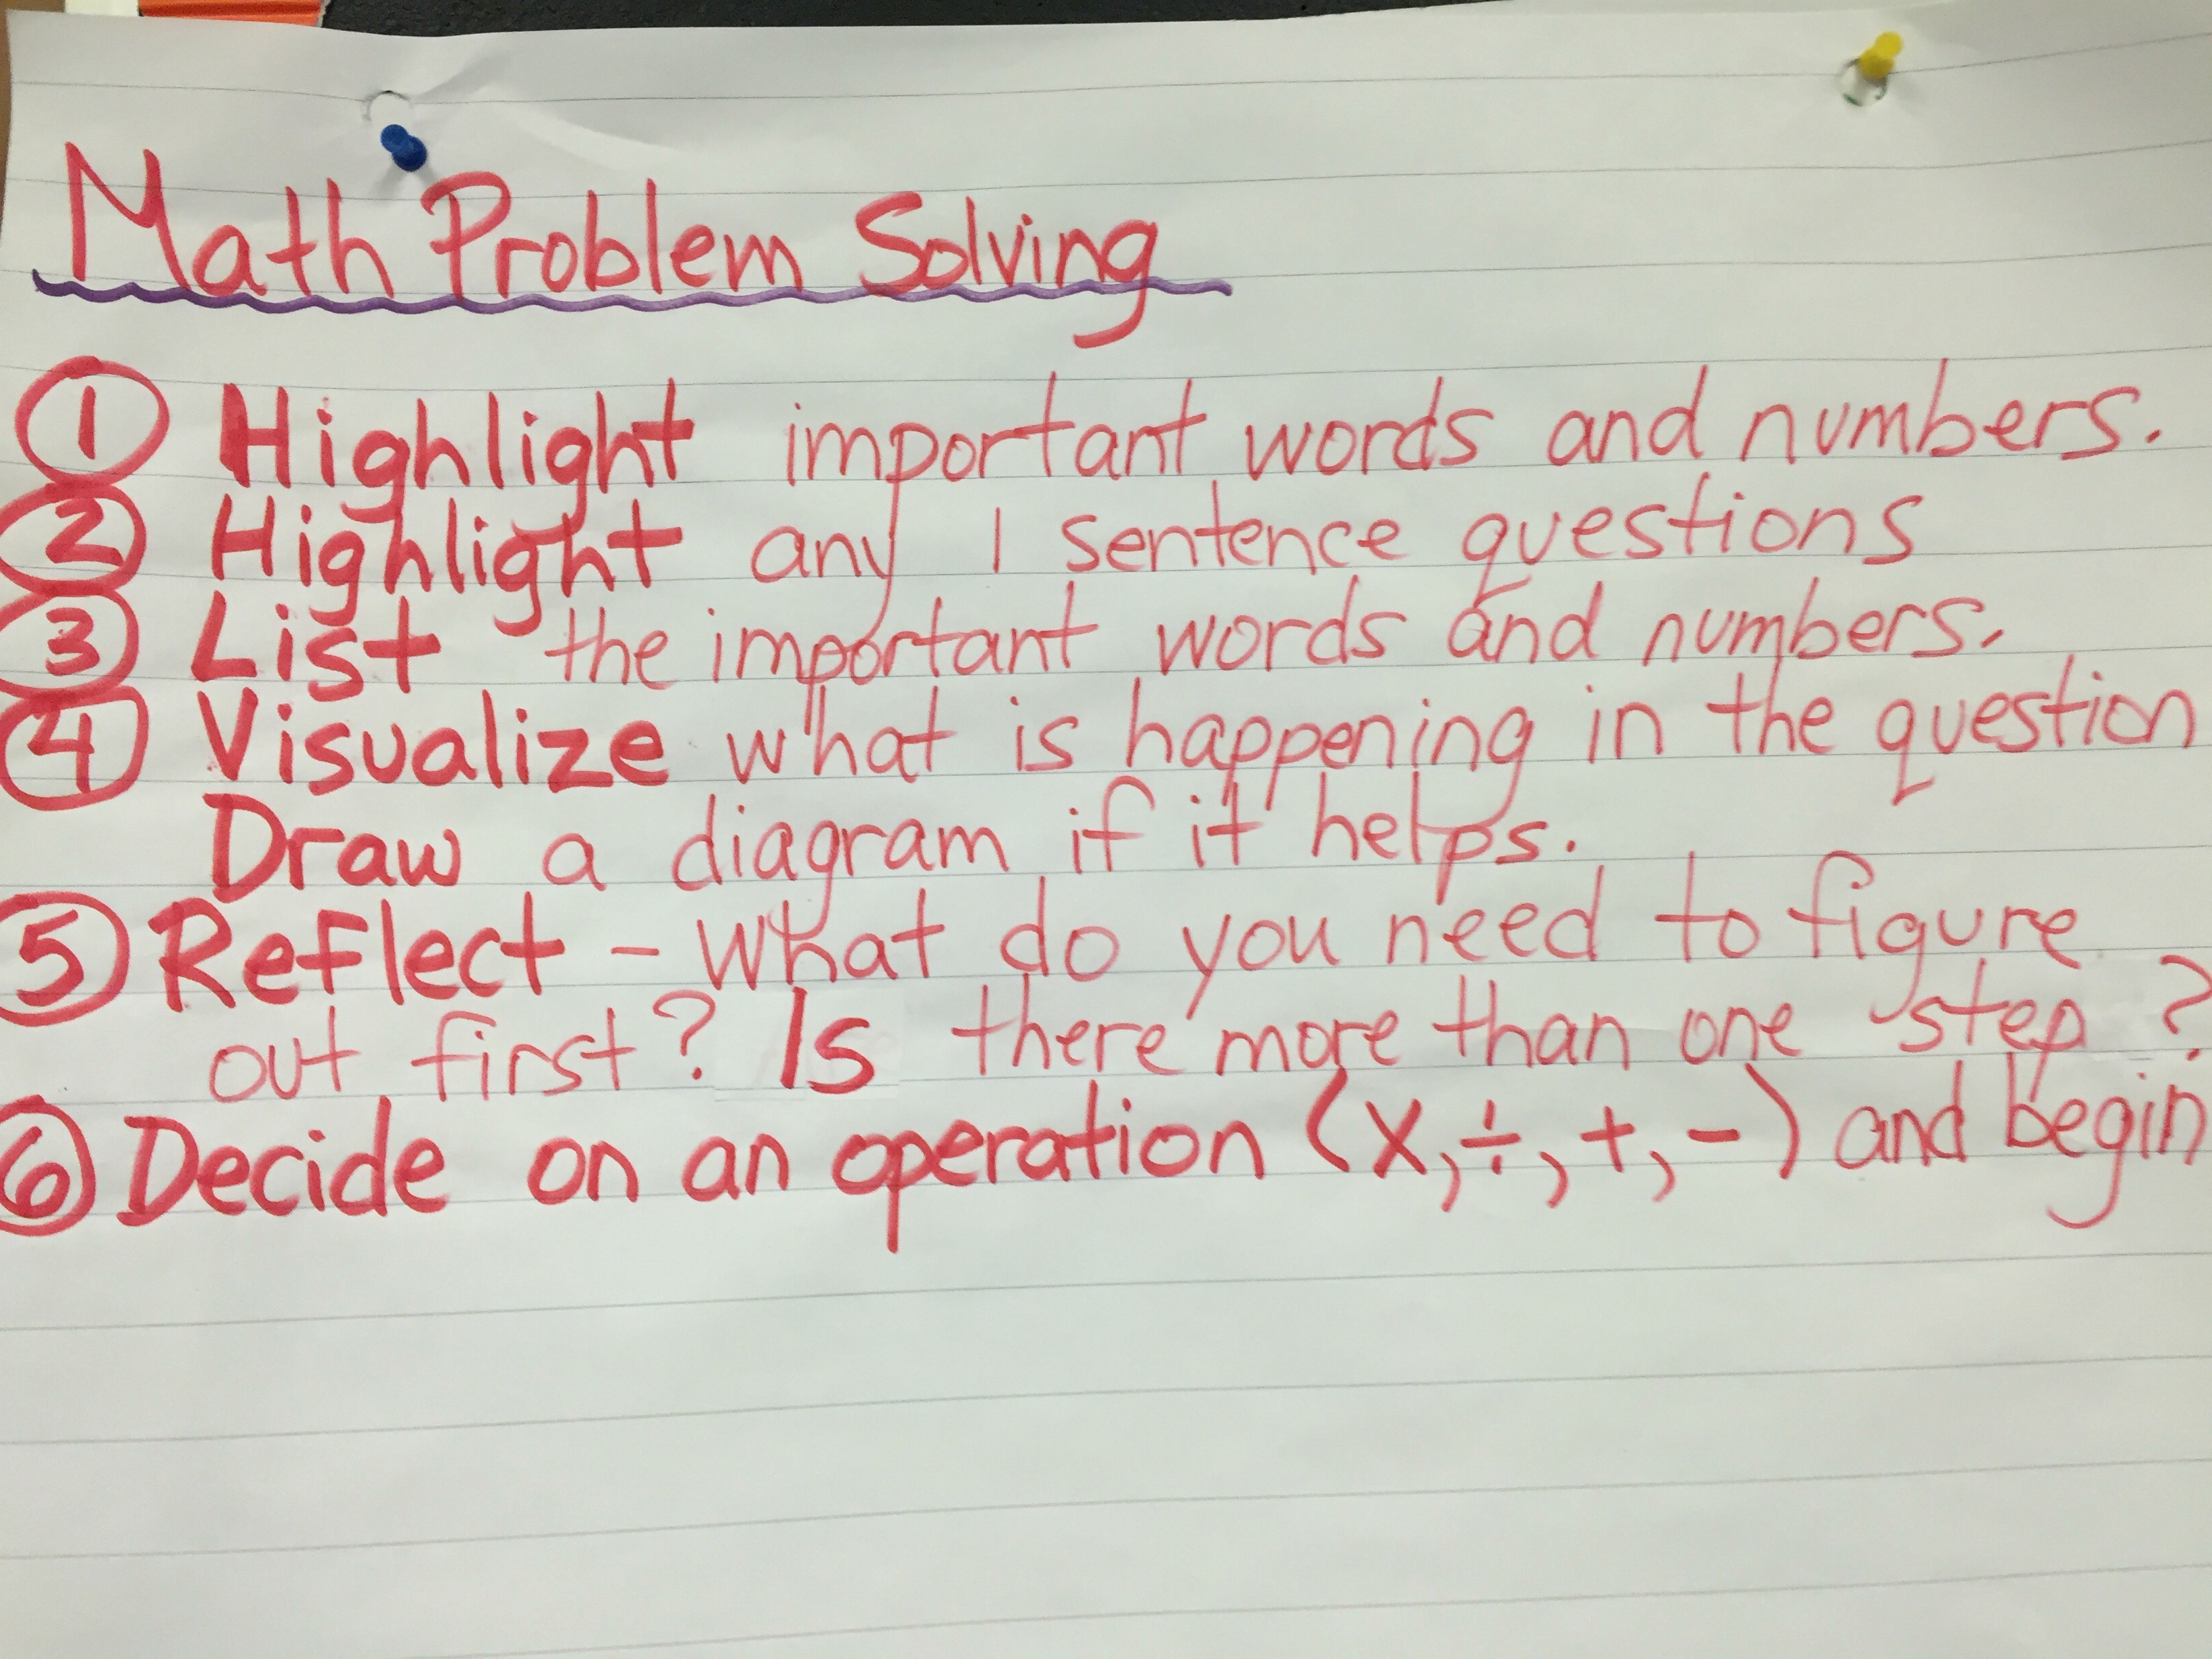 Math Problem Solving
① Highlight important words and numbers.
② Highlight any 1 sentence questions
③ List the important words and numbers.
④ Visualize what is happening in the question
Draw a diagram if it helps.
⑤ Reflect - what do you need to figure
out first? Is there more than one step?
⑥ Decide on an operation (x, ÷, +, -) and begin